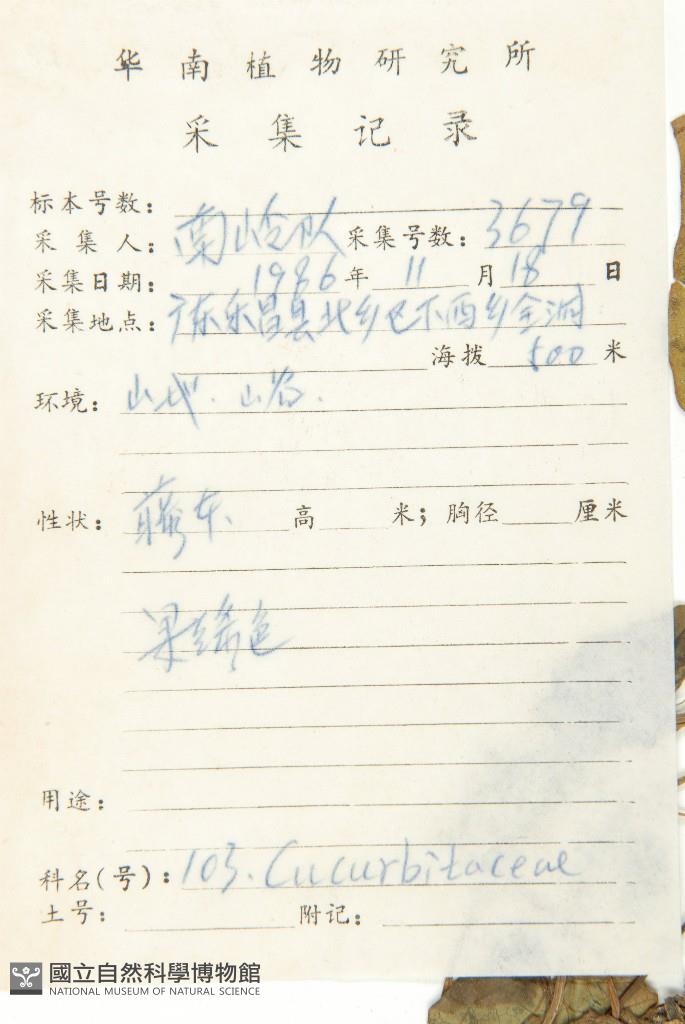 华南植物研究所
采集记录
标本号数:
采集人: 南岭队 采集号数: 3679
采集日期: 1986 年 11 月 18 日
采集地点: 广东乐昌县北乡区下西乡金洞
海拨 500 米
环境: 山地. 山谷.
性状: 藤本. 高 米; 胸径 厘米
果绿色
用途:
科名(号): 103. Cucurbitaceae
土号: 附记:
國立自然科學博物館
NATIONAL MUSEUM OF NATURAL SCIENCE